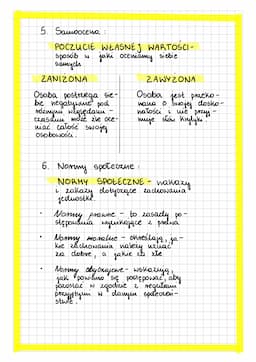 5. Samoocena :
POCZUCIE WŁASNEJ WARTOŚCI -
sposób w jaki oceniamy siebie
samych
ZANIŻONA
ZAWYŻONA
Osoba postrzega sie-
bie negatywnie pod
różnymi względami -
czasami może źle oce-
niać całość swojej
osobowości.
Osoba jest przeko-
nana o swojej dosko-
nałości i nie przy-
muje słów krytyki
6. Normy społeczne :
NORMY SPOŁECZNE - nakazy
i zakazy dotyczące zachowania
jednostki.
• Normy prawne - to zasady po-
stępowania wynikające z prawa
• Normy moralne - określają, ja-
kie zachowania należy uznać
za dobre, a jakie za złe
• Normy obyczajowe - wskazują,
jak powinno się postępować, aby
pozostać w zgodzie z regułami
przyjętymi w danym społeczeń-
stwie.